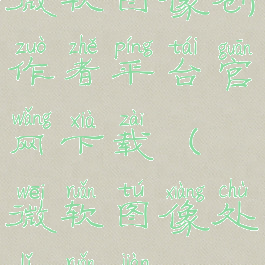 微软图像创
zuò zhě píng tái guān
作者平台官
wǎng xià zài
网下载（
wēi ruǎn tú xiàng chǔ
微软图像处